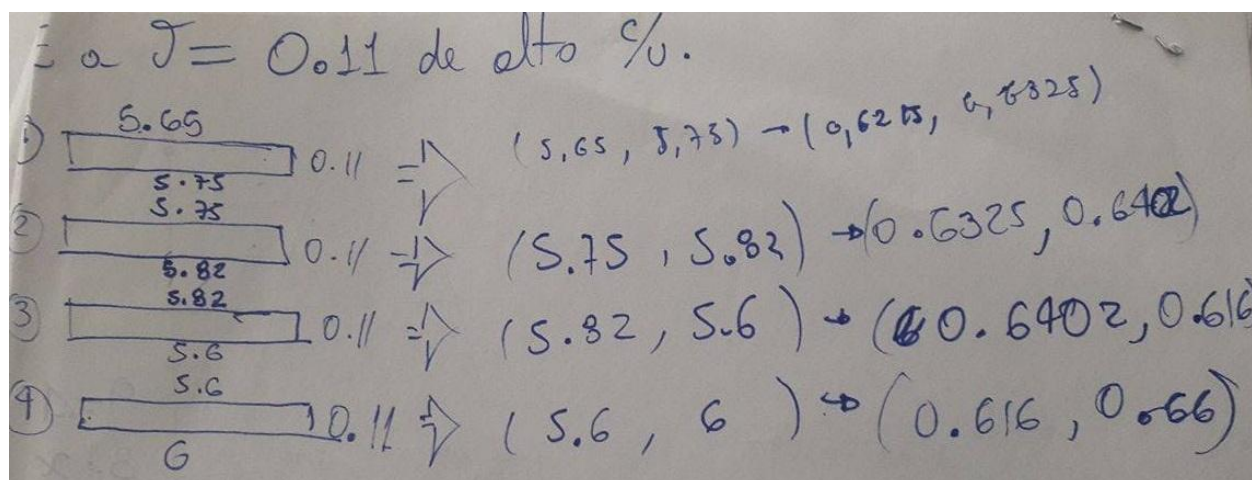 a T = 0.11 de alto c/u.
1) 5.65
5.75 0.11 ⇒ (5,65, 5,75) → (0,6215, 0,6325)
2) 5.75
5.82 0.11 ⇒ (5.75, 5.82) → (0.6325, 0.6402)
3) 5.82
5.6 0.11 ⇒ (5.82, 5.6) → (0.6402, 0.616
4) 5.6
6 0.11 ⇒ (5.6, 6) → (0.616, 0.66)